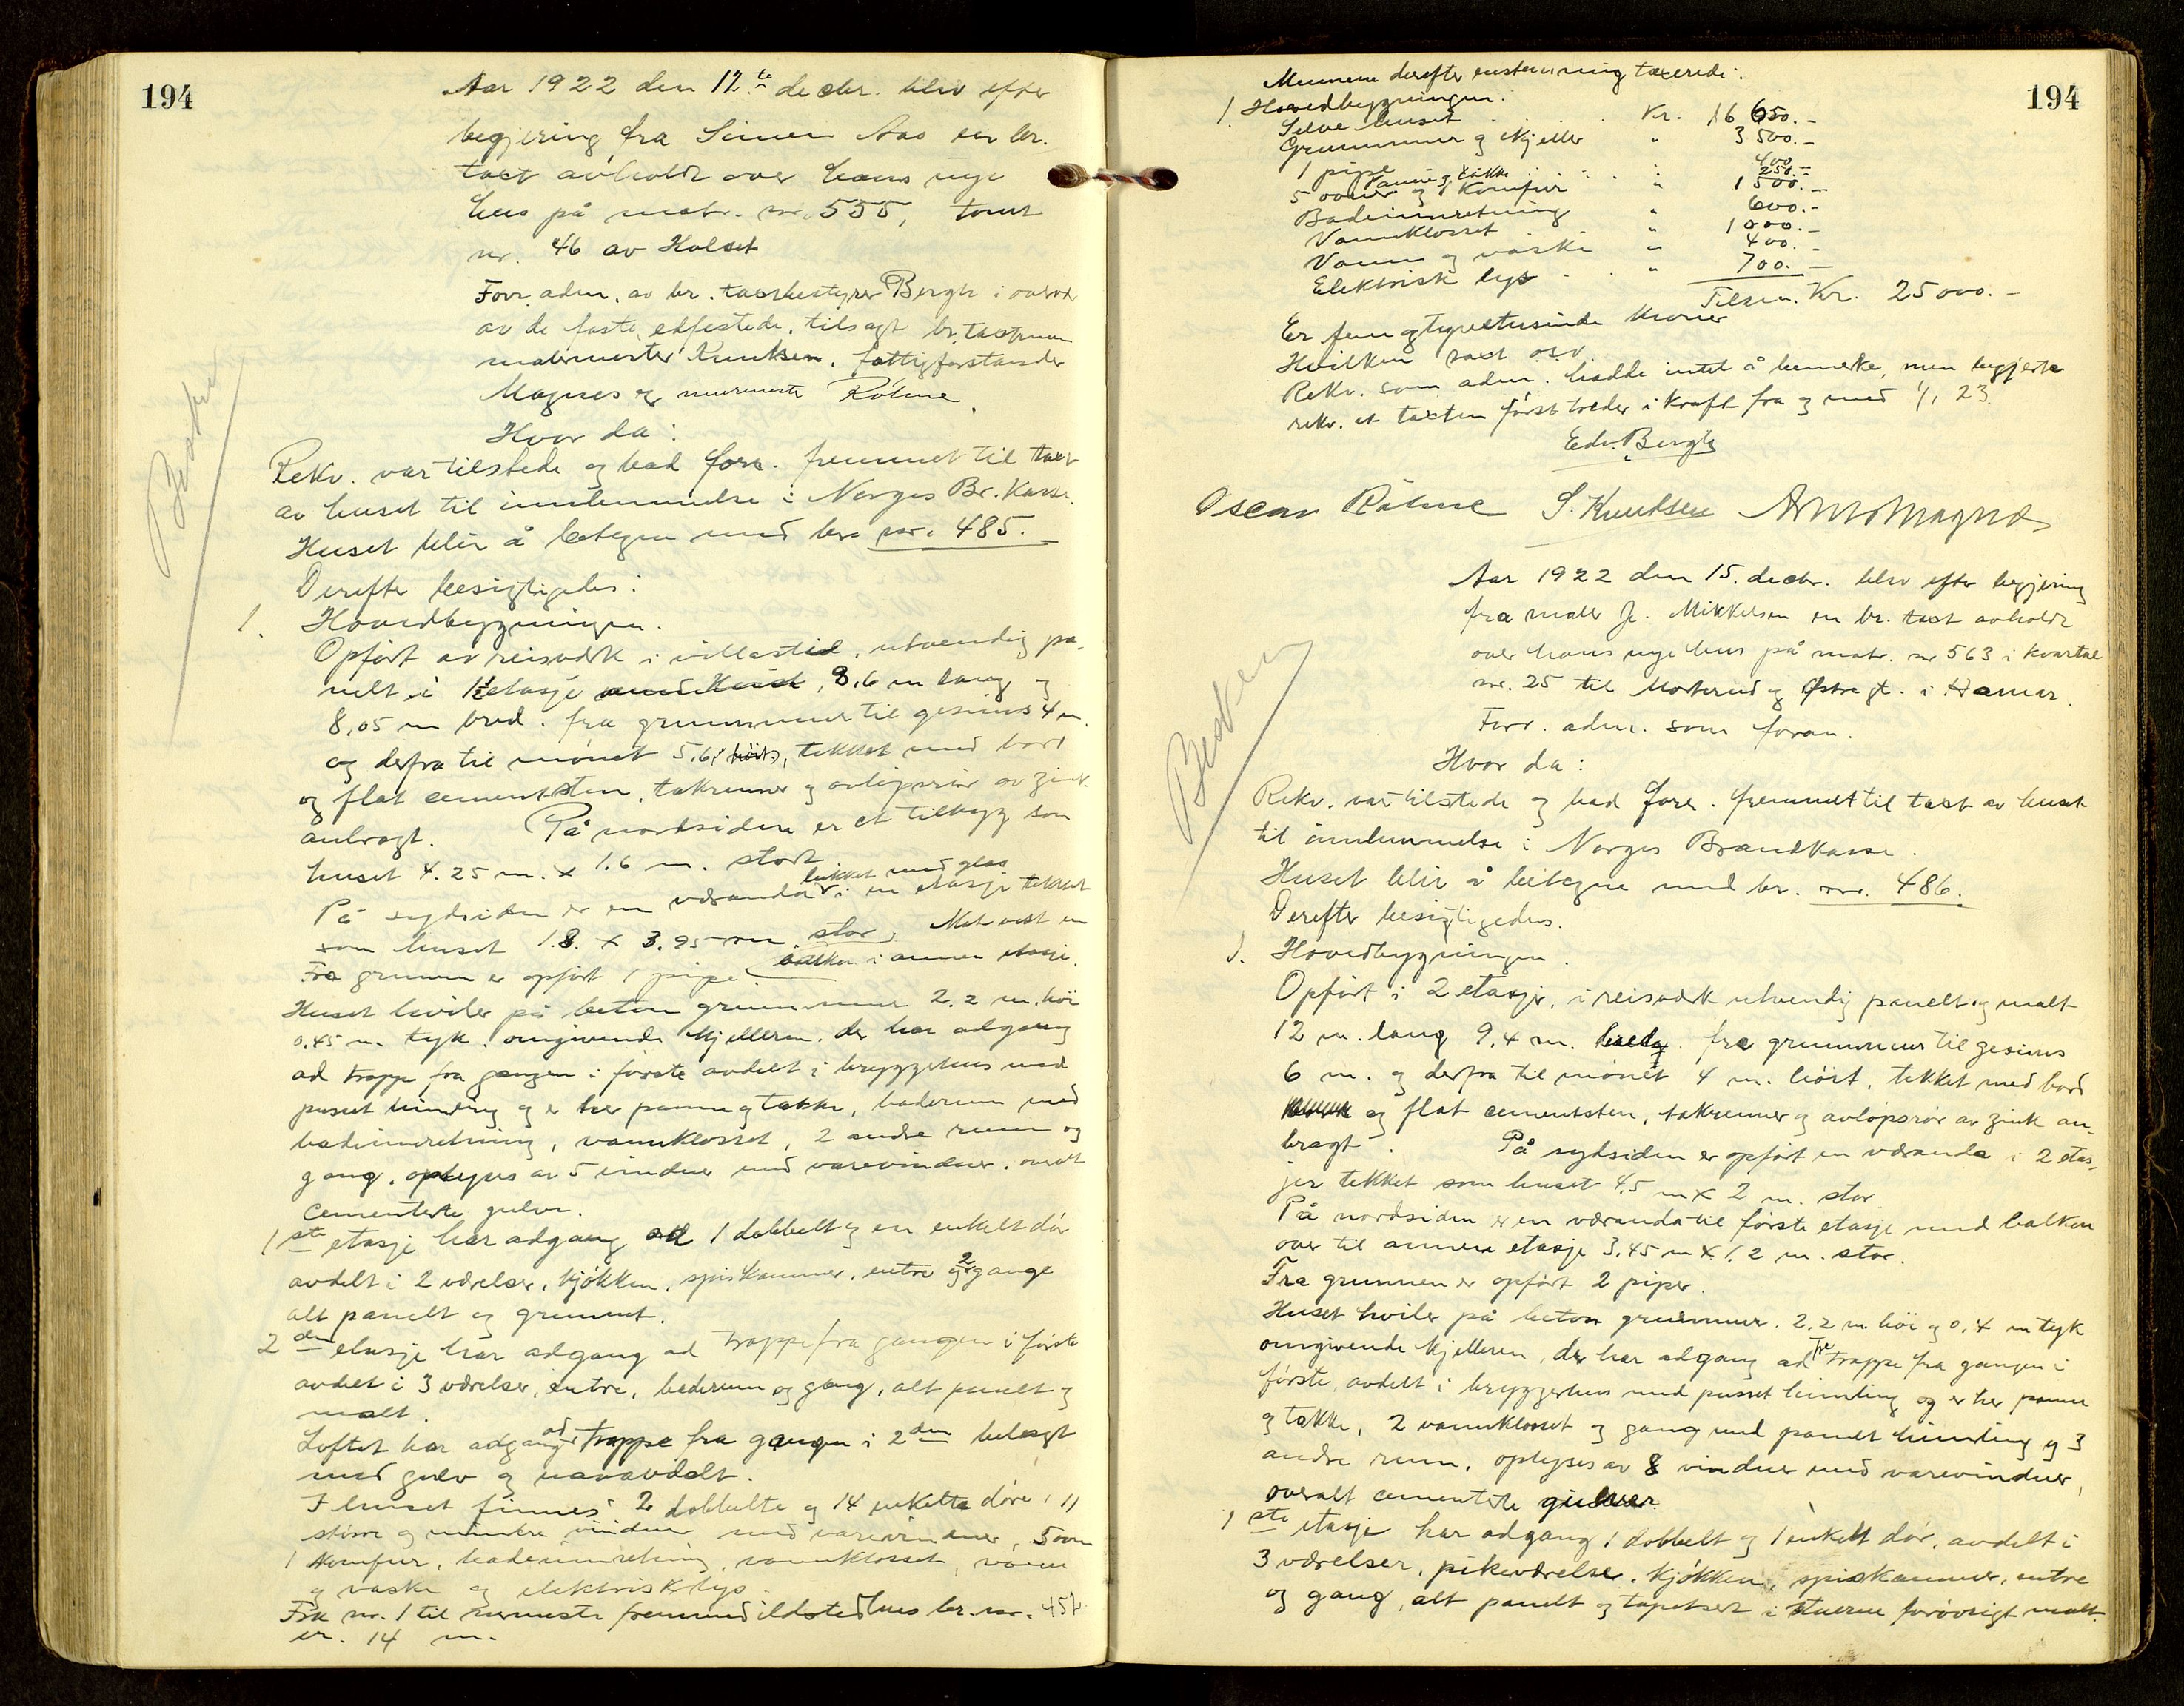 194
Aar 1922 den 12te decbr. blev efter
begjering fra Simen Aas en br.
taxt avholdt over hans nye
hus på matr. nr. 555, tomt
nr. 46 av Holset
Forr. adm. av br. taxtbestyrer Bergh i overvær
av de faste edfestede, tilsagt br. taxtmen
malermester Knutsen, fattigforstander
Magnes og murmester Råhme
Hvor da:
Rekv. var tilstede og bad forr. fremmet til taxt
av huset til innlemmelse i Norges Br. Kasse.
Huset blir å betegne med br. nr. 485.
Derefter besigtigedes:
1. Hovedbygningen.
Opført av reisverk i villastil, utvendig pa-
nelt i 1½ etasje 8,6 m lang og
8,05 m bred. fra grunnmur til gesims 4 m.
og derfra til mønet 5,6 tekket med bord
og flat cementsten, takrenner og avløpsrør av zink
anbragt. På nordsiden er et tilbygg som
huset 4.25 m. x 1.6 m. stort
På sydsiden er en veranda lukket med glas i en etasje tekket
som huset 1.8. x 3.95 m. stor, Mot vest en
balkon i annen etasje.
Fra grunnen er opført 1 pipe
Huset hviler på beton grunnmur 2.2 m. høi
0.45 m. tyk. omgivende kjelleren, der har adgang
ad trappe fra gangen i første avdelt i bryggehus med
pusset himling og er her panne og takke, baderum med
badeinnretning, vannklosset, 2 andre rum og
gang, oplyses av 5 vinduer med varevinduer. overalt
cementerte gulve.
1ste etasje har adgang ad 1 dobbelt og en enkelt dør
avdelt i 2 værelser, kjøkken, spiskammer, entre og 2 gange
alt panelt og grunnet.
2den etasje har adgang ad trappe fra gangen i første
avdelt i 3 værelser, entre, baderum og gang, alt panelt og
malt.
Loftet har adgang ad trappe fra gangen i 2den belagt
med gulv og uavdelt.
I huset finnes 2 dobbelte og 14 enkelte døre, 11
større og mindre vinduer med varevinduer, 5 ovne
1 komfur, badeinnretning, vannklosset, vann
og vaske og elektrisk lys.
Fra nr. 1 til nermeste fremmed ildstedhus br. nr. 457
er 14 m.
Besker
194
Mennene derefter enstemmig taxerede:
1. Hovedbygningen:
Selve huset Kr. 16 650.-
Grunnmur og kjeller " 3 500.-
1 pipe " 400.-
Panne og takke " 250.-
5 ovner og 1 Komfur " 1 500.-
Badeinnretning " 600.-
Vannklosset " 1 000.-
Vann og vaske " 400.-
Elektrisk lys " 700.-
Tilsm. Kr. 25 000.-
Er fem og tyvetusinde kroner
Hvilken taxt osv.
Rekv. som adm. hadde intet å bemerke, men begjerte
rekv. at taxten først treder i kraft fra og med 1/1 23.
Edv. Bergh
Oscar Råhme S. Knudsen Magnes
Aar 1922 den 15. decbr. blev efter begjering
fra maler J. Mikkelsen en br. taxt avholdt
over hans nye hus på matr. nr 563 i kvartal
nr. 25 til Moterud og Østre gt. i Hamar.
Forr. adm. som foran.
Hvor da:
Rekv. var tilstede og bad forr. fremmet til taxt av huset
til innlemmelse i Norges Brandkasse.
Huset blir å betegne med br. nr. 486.
Derefter besigtigedes.
1. Hovedbygningen.
Opført i 2 etasjer, i reisverk utvendig panelt og malt
12 m. lang 9.4 m. bred. fra grunnmur til gesims
6 m. og derfra til mønet 4 m. høit, tekket med bord
og flat cementsten, takrenner og avløpsrør av zink an-
bragt. På sydsiden er opført en veranda i 2 etas-
jer tekket som huset 4.5 m x 2 m. stor
På nordsiden er en veranda til første etasje med balkon
over til annen etasje 3.45 m x 1.2 m. stor.
Fra grunnen er opført 2 piper.
Huset hviler på beton grunnmur 2.2 m høi og 0.4 m tyk
omgivende kjelleren, der har adgang ad tre trappe fra gangen i
første, avdelt i bryggerhus med pusset himling og er her panne
og takke, 2 vannklosset og gang med panelt himling og 3
andre rum, oplyses av 8 vinduer med varevinduer,
overalt cementerte gulver.
1ste etasje har adgang 1 dobbelt og 1 enkelt dør, avdelt i
3 værelser, pikeværelse, kjøkken, spiskammer, entre
og gang, alt panelt og tapetsert i stuerne forøvrigt malt.
Besker